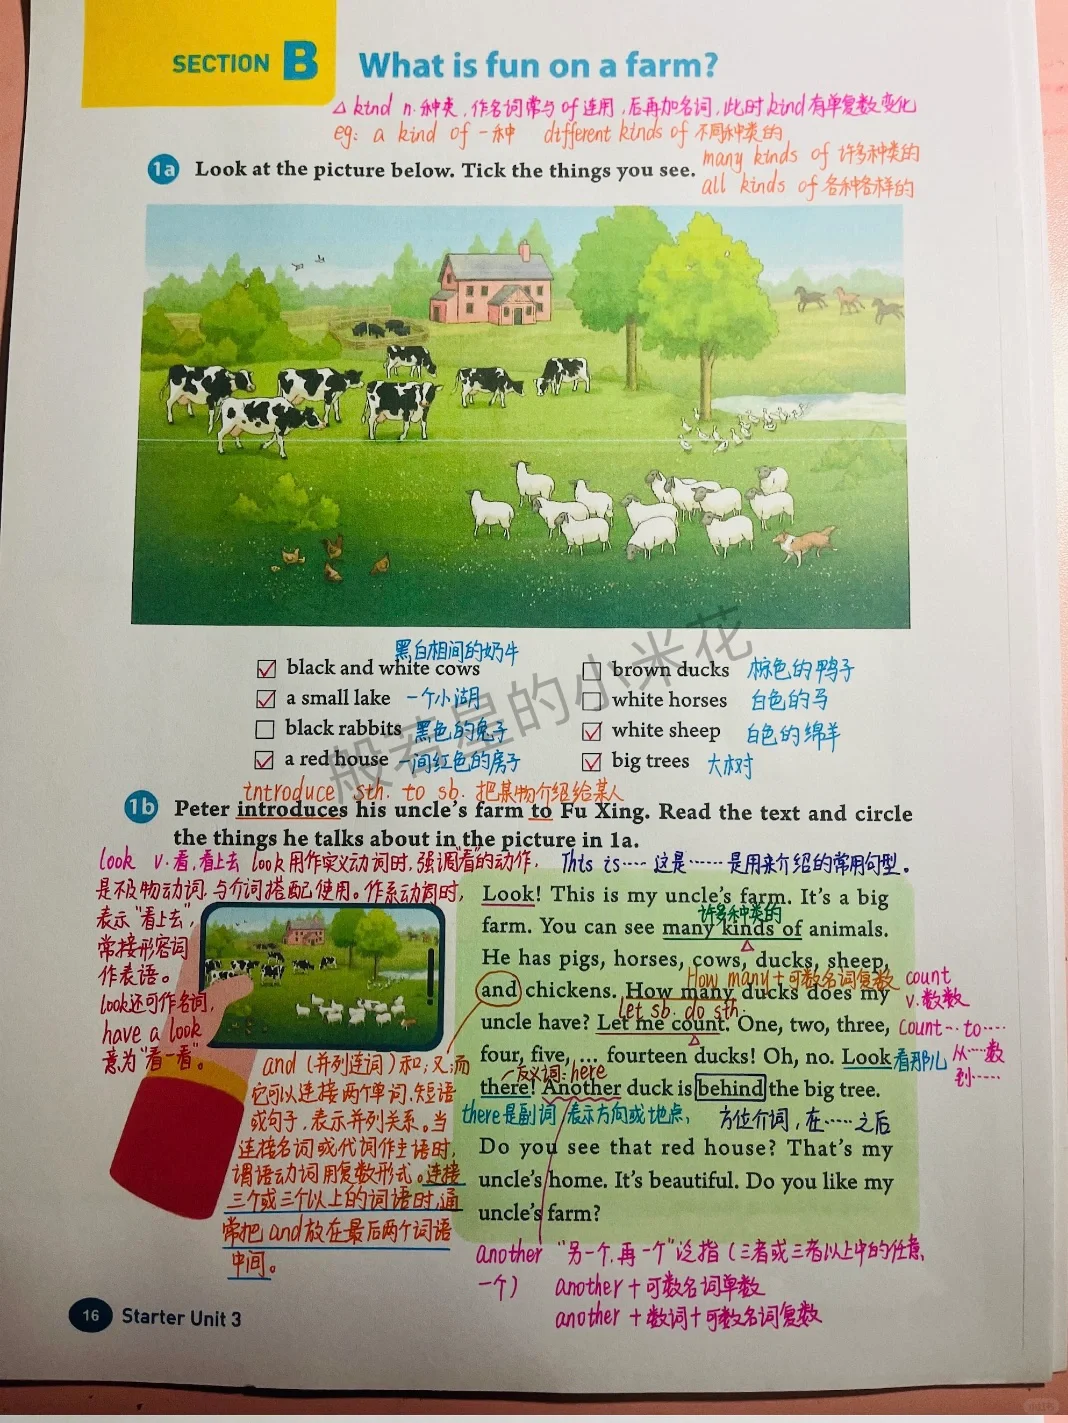 SECTION B What is fun on a farm?
△ kind n.种类，作名词常与of连用，后再加名词，此时kind有单复数变化
eg: a kind of 一种 different kinds of 不同种类的
many kinds of 许多种类的
all kinds of 各种各样的
1a Look at the picture below. Tick the things you see.
黑白相间的奶牛
black and white cows
a small lake 一个小湖
black rabbits 黑色的兔子
a red house 一间红色的房子
brown ducks 棕色的鸭子
white horses 白色的马
white sheep 白色的绵羊
big trees 大树
般若星的小米花
introduce sth. to sb. 把某物介绍给某人
1b Peter introduces his uncle's farm to Fu Xing. Read the text and circle
the things he talks about in the picture in 1a.
look v.看,看上去 look用作实义动词时,强调"看"的动作,
是不及物动词,与介词搭配使用。作系动词时,
表示"看上去",
常接形容词
作表语。
look还可作名词,
have a look
意为"看一看"。
This is…… 这是…… 是用来介绍的常用句型。
Look! This is my uncle's farm. It's a big
许多种类的
farm. You can see many kinds of animals.
He has pigs, horses, cows, ducks, sheep,
How many+可数名词复数
and chickens. How many ducks does my
let sb. do sth.
uncle have? Let me count. One, two, three,
four, five, ... fourteen ducks! Oh, no. Look 看那儿
反义词:here
there! Another duck is behind the big tree.
there是副词 表示方向或地点, 方位介词,在……之后
Do you see that red house? That's my
uncle's home. It's beautiful. Do you like my
uncle's farm?
count
v.数数
count…to……
从……数
到……
and (并列连词) 和;又;而
它可以连接两个单词.短语
或句子,表示并列关系。当
连接名词或代词作主语时,
谓语动词用复数形式。连接
三个或三个以上的词语时,通
常把and放在最后两个词语
中间。
another "另一个,再一个"泛指(三者或三者以上中的任意
一个) another+可数名词单数
another+数词+可数名词复数
16 Starter Unit 3